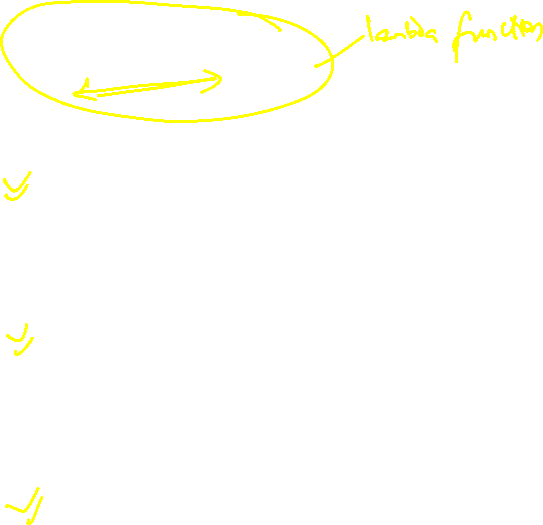 lambda function